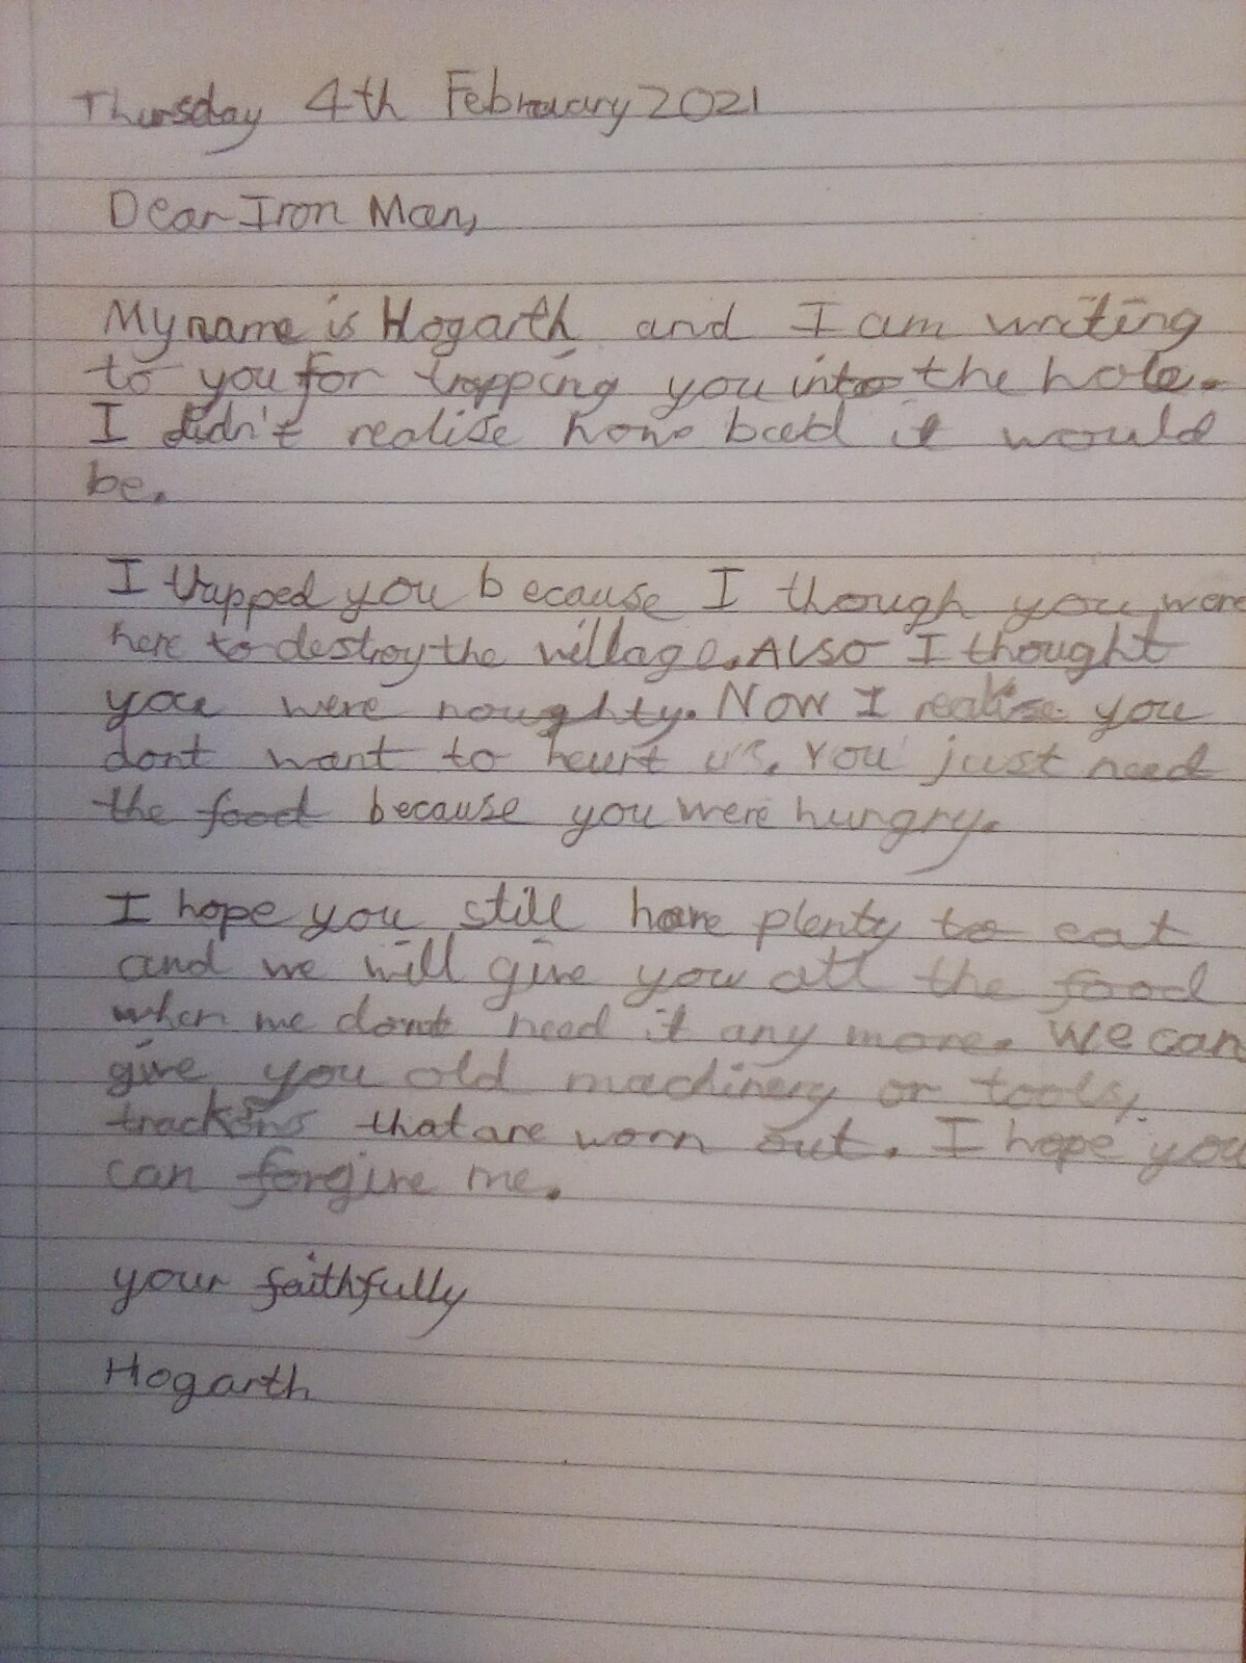 Thursday 4th February 2021
Dear Iron Man,
My name is Hogarth and I am writing
to you for trapping you into the hole.
I didn't realise how bad it would
be.
I trapped you because I though you were
here to destroy the village. Also I thought
you were noughty. Now I realise you
dont want to heurt us. You just need
the food because you were hungry.
I hope you still have plenty to eat
and we will give you all the food
when we dont need it any more. We can
give you old machinery or tools,
tracktors that are worn out. I hope you
can forgive me.
your faithfully
Hogarth